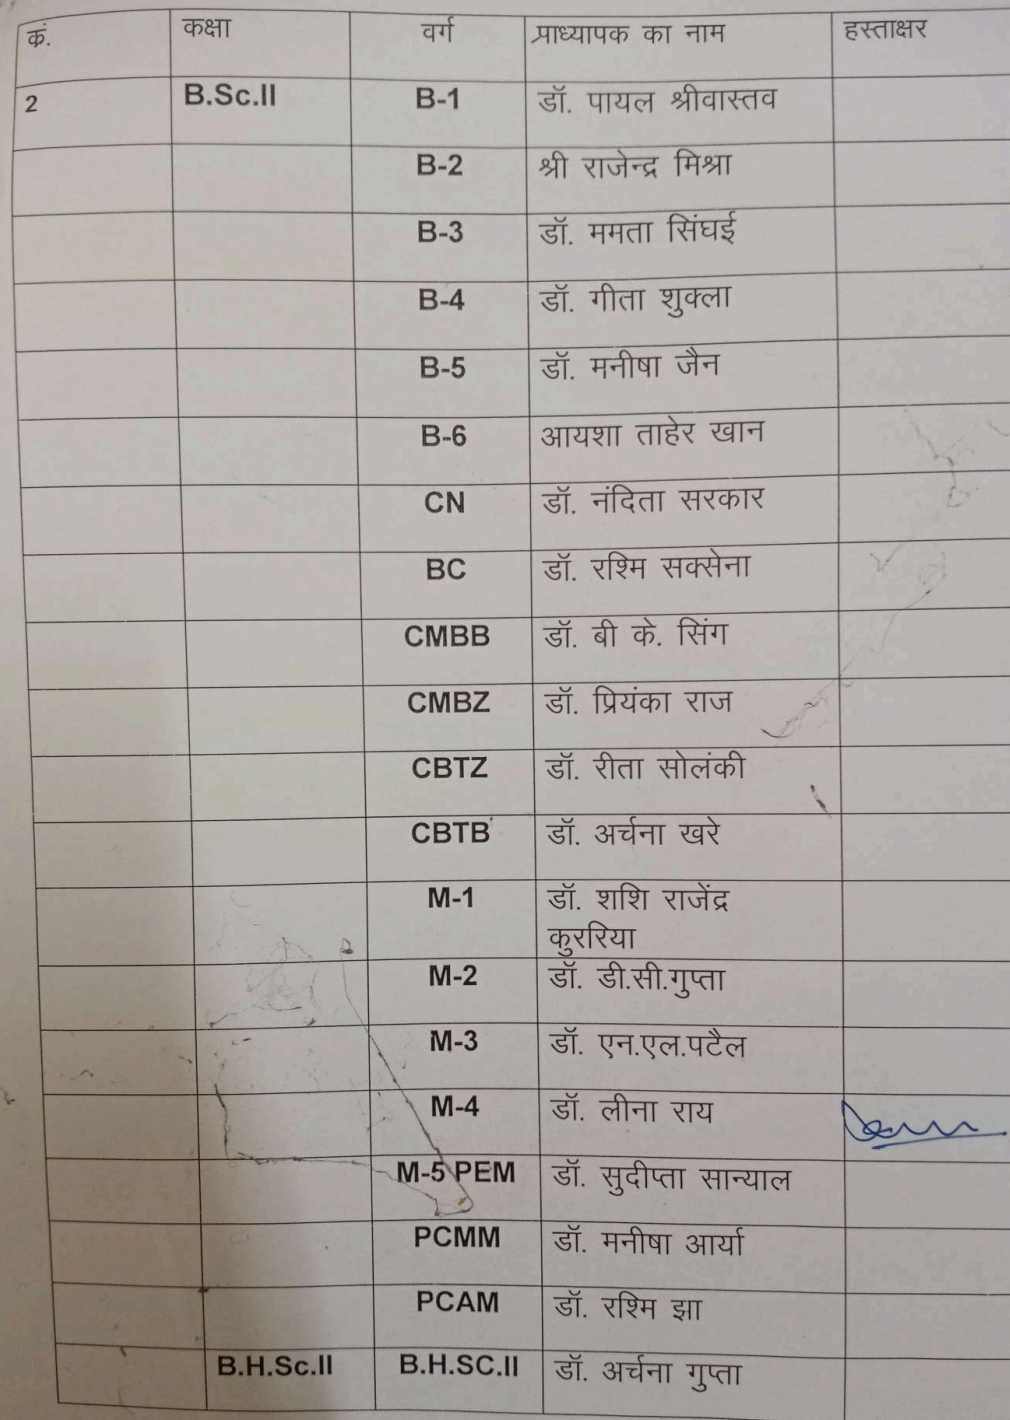 कं. कक्षा वर्ग प्राध्यापक का नाम हस्ताक्षर
2 B.Sc.II B-1 डॉ. पायल श्रीवास्तव
B-2 श्री राजेन्द्र मिश्रा
B-3 डॉ. ममता सिंघई
B-4 डॉ. गीता शुक्ला
B-5 डॉ. मनीषा जैन
B-6 आयशा ताहेर खान
CN डॉ. नंदिता सरकार
BC डॉ. रश्मि सक्सेना
CMBB डॉ. बी के. सिंग
CMBZ डॉ. प्रियंका राज
CBTZ डॉ. रीता सोलंकी
CBTB डॉ. अर्चना खरे
M-1 डॉ. शशि राजेंद्र
कुररिया
M-2 डॉ. डी.सी.गुप्ता
M-3 डॉ. एन.एल.पटैल
M-4 डॉ. लीना राय
M-5 PEM डॉ. सुदीप्ता सान्याल
PCMM डॉ. मनीषा आर्या
PCAM डॉ. रश्मि झा
B.H.Sc.II B.H.SC.II डॉ. अर्चना गुप्ता